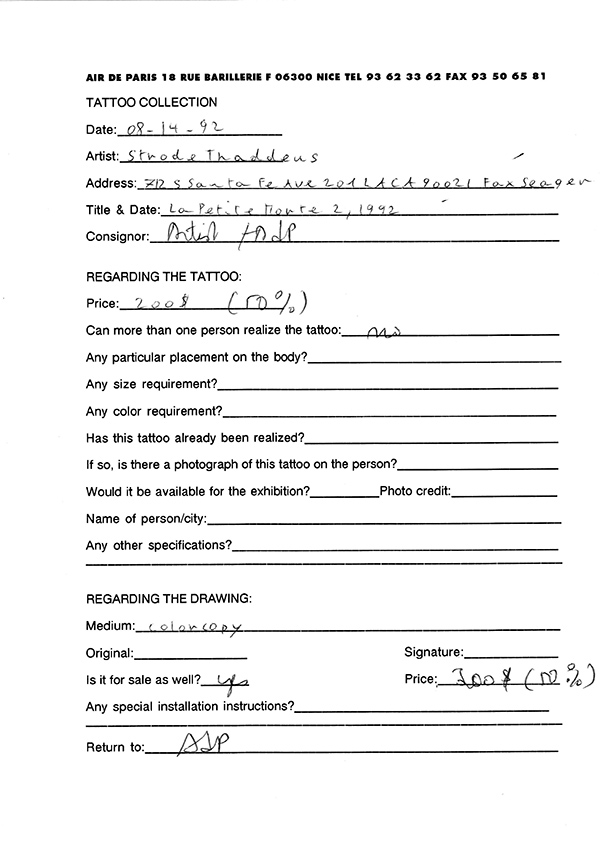 AIR DE PARIS 18 RUE BARILLERIE F 06300 NICE TEL 93 62 33 62 FAX 93 50 65 81
TATTOO COLLECTION
Date: 08-14-92
Artist: Strode Thaddeus
Address: 712 S Santa Fe Ave 201 LA CA 90021 Fax Seager
Title & Date: La Petite Morte 2, 1992
Consignor: Artist / ADP
REGARDING THE TATTOO:
Price: 200$ (50%)
Can more than one person realize the tattoo:
Any particular placement on the body?
Any size requirement?
Any color requirement?
Has this tattoo already been realized?
If so, is there a photograph of this tattoo on the person?
Would it be available for the exhibition? Photo credit:
Name of person/city:
Any other specifications?
REGARDING THE DRAWING:
Medium: colorcopy
Original: Signature:
Is it for sale as well? yes Price: 300$ (50%)
Any special installation instructions?
Return to: ADP